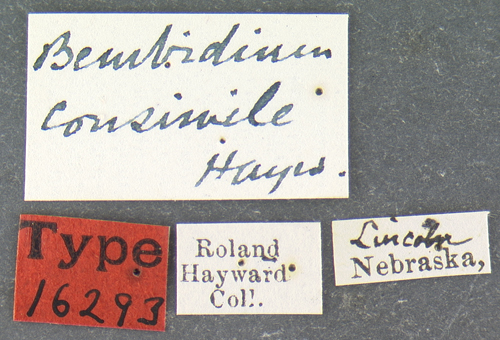 Bembidium
consimile
Hayw.
Type
16293
Roland
Hayward
Coll.
Lincoln
Nebraska,